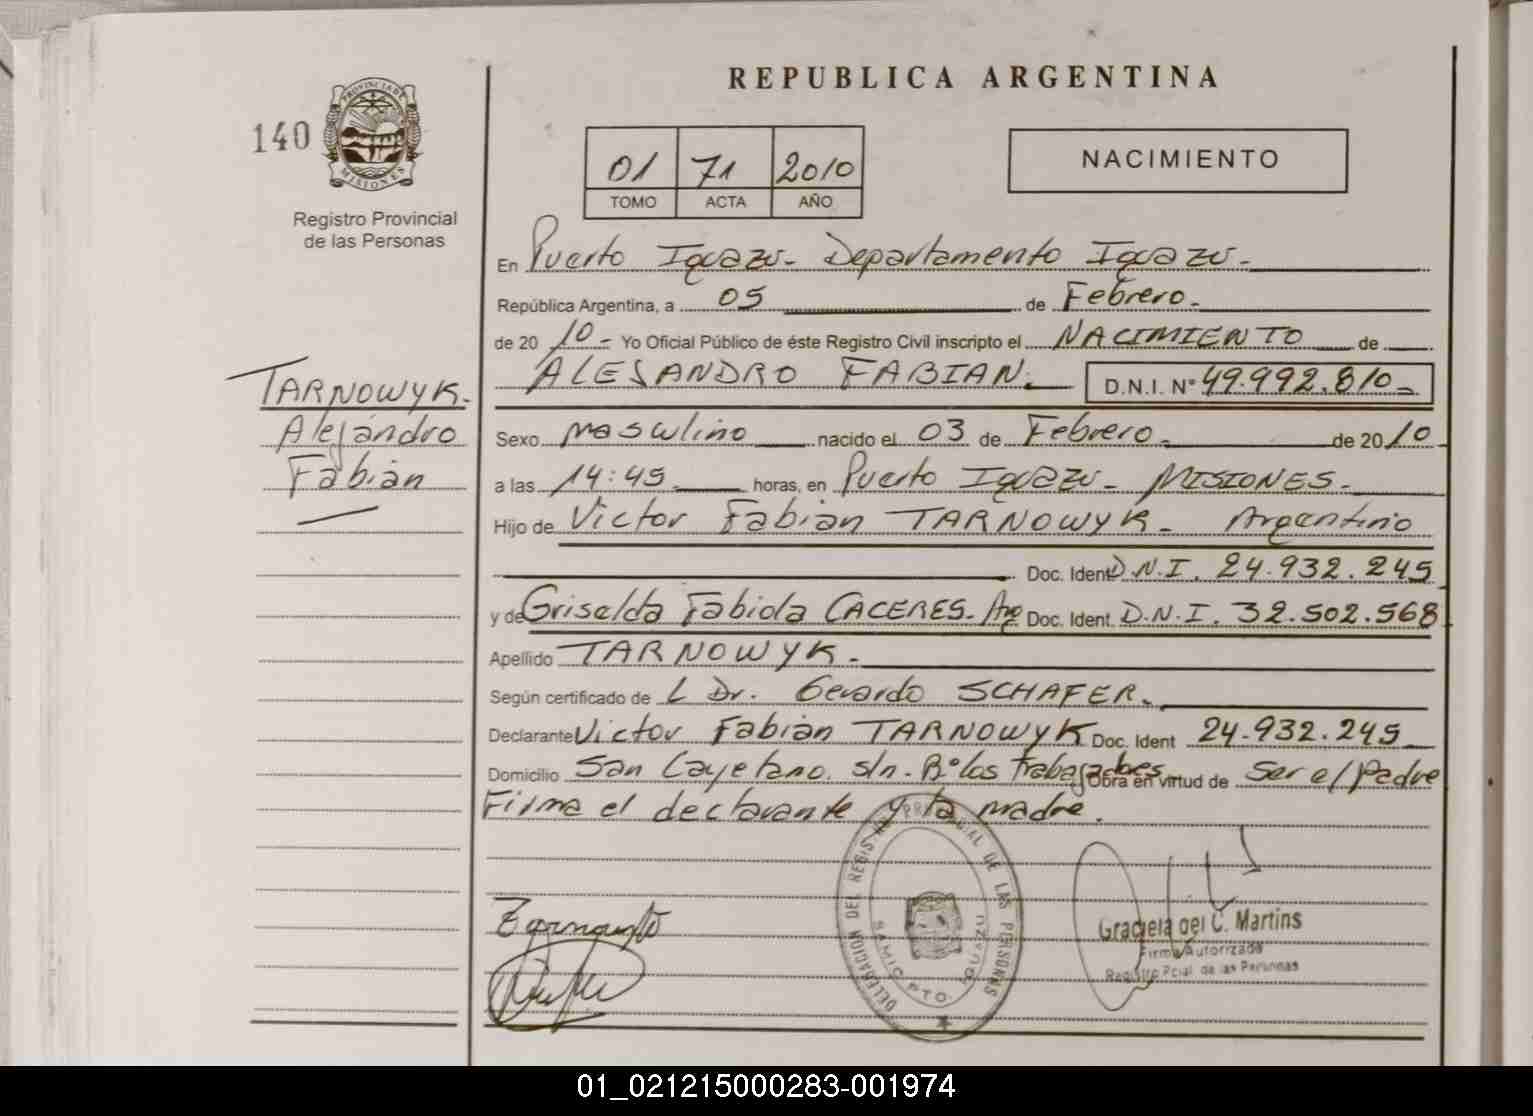 REPUBLICA ARGENTINA
140
PROVINCIA DE
MISIONES
Registro Provincial
de las Personas
01 71 2010
TOMO ACTA AÑO
NACIMIENTO
En Puerto Iguazu- Departamento Iguazu-
República Argentina, a 05 de Febrero-
de 20 10- Yo Oficial Público de éste Registro Civil inscripto el NACIMIENTO de
ALESANDRO FABIAN. D.N.I. Nº 49.992.810-
TARNOWYK.
Alejandro
Fabián
Sexo masculino nacido el 03 de Febrero- de 20 10
a las 14:45 horas, en Puerto Iguazu- MISIONES.
Hijo de Victor Fabián TARNOWYK- Argentino
Doc. Ident D.N.I. 24.932.245
y de Griselda Fabiola CACERES- Arg Doc. Ident. D.N.I. 32.502.568
Apellido TARNOWYK-
Según certificado de L Dr. Gerardo SCHAFER.
Declarante Victor Fabián TARNOWYK Doc. Ident 24.932.245
Domicilio San Cayetano. s/n. Bº los trabajadores Obra en virtud de Ser el padre
Firma el declarante y la madre.
DELEGACION DEL REGISTRO PROVINCIAL DE LAS PERSONAS
PTO. IGUAZU
Graciela del C. Martins
Firma Autorizada
Registro Pcial. de las Personas
01_021215000283-001974